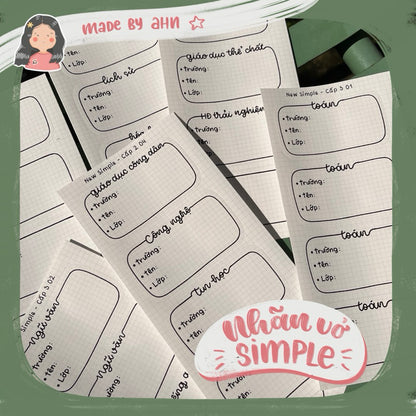 MADE BY AHN
lịch sử
• Trường:
• Tên:
• Lớp:
giáo dục thể chất
• Trường:
• Tên:
• Lớp:
HĐ trải nghiệm
• Trường:
• Tên:
• Lớp:
New Simple - Cấp 3 01
toán
• Trường:
• Tên:
• Lớp:
toán
• Trường:
• Tên:
• Lớp:
toán
• Trường:
• Tên:
• Lớp:
toán
New Simple - Cấp 2 04
giáo dục công dân
• Trường:
• Tên:
• Lớp:
Công nghệ
• Trường:
• Tên:
• Lớp:
tin học
• Trường:
• Tên:
• Lớp:
Simple - Cấp 3 02
Ngữ văn
Trường:
• Tên:
• Lớp:
Ngữ văn
Trường:
Tên:
Nhãn vở
SIMPLE